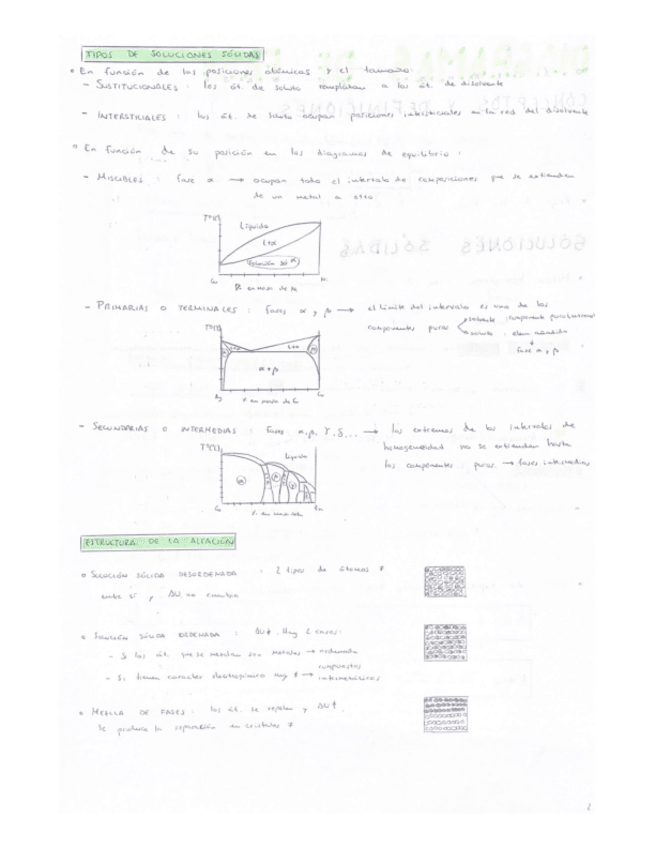 TIPOS DE SOLUCIONES SÓLIDAS
• En función de las posiciones atómicas y el tamaño:
- SUSTITUCIONALES : los át. de soluto remplazan a los át. de disolvente
- INTERSTICIALES : los át. de soluto ocupan posiciones intersticiales en la red del disolvente
• En función de su posición en los diagramas de equilibrio :
- MISCIBLES : fase α → ocupan todo el intervalo de composiciones que se extienden
de un metal a otro.
Líquido
L+α
Solución sól α
- PRIMARIAS O TERMINALES : fases α y β → el límite del intervalo es uno de los
componentes puros
solvente : componente puro
soluto : elem añadido
fase α y β
L+α
L+β
α+β
Ag
Cu
- SECUNDARIAS O INTERMEDIAS : fases α, β, γ, δ... → los extremos de los intervalos de
homogeneidad no se extienden hasta
los componentes puros → fases intermedias
Líquido
α
β
γ
ESTRUCTURA DE LA ALEACIÓN
• SOLUCIÓN SÓLIDA DESORDENADA : 2 tipos de átomos ≠
entre sí y ΔU no cambia
• SOLUCIÓN SÓLIDA ORDENADA : ΔU↓. Hay 2 casos:
- Si los át. que se mezclan son metales → ordenada
- Si tienen carácter electroquímico muy ≠ → compuestos
intermetálicos
• MEZCLA DE FASES : los át. se repelen y ΔU↑.
Se produce la separación en cristales ≠